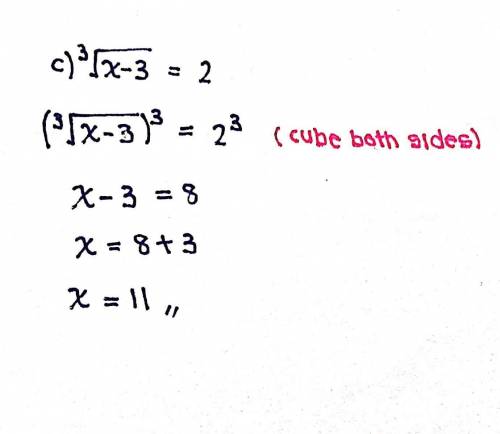 c) ³√x-3 = 2
(³√x-3)³ = 2³ (cube both sides)
x - 3 = 8
x = 8 + 3
x = 11 ,,